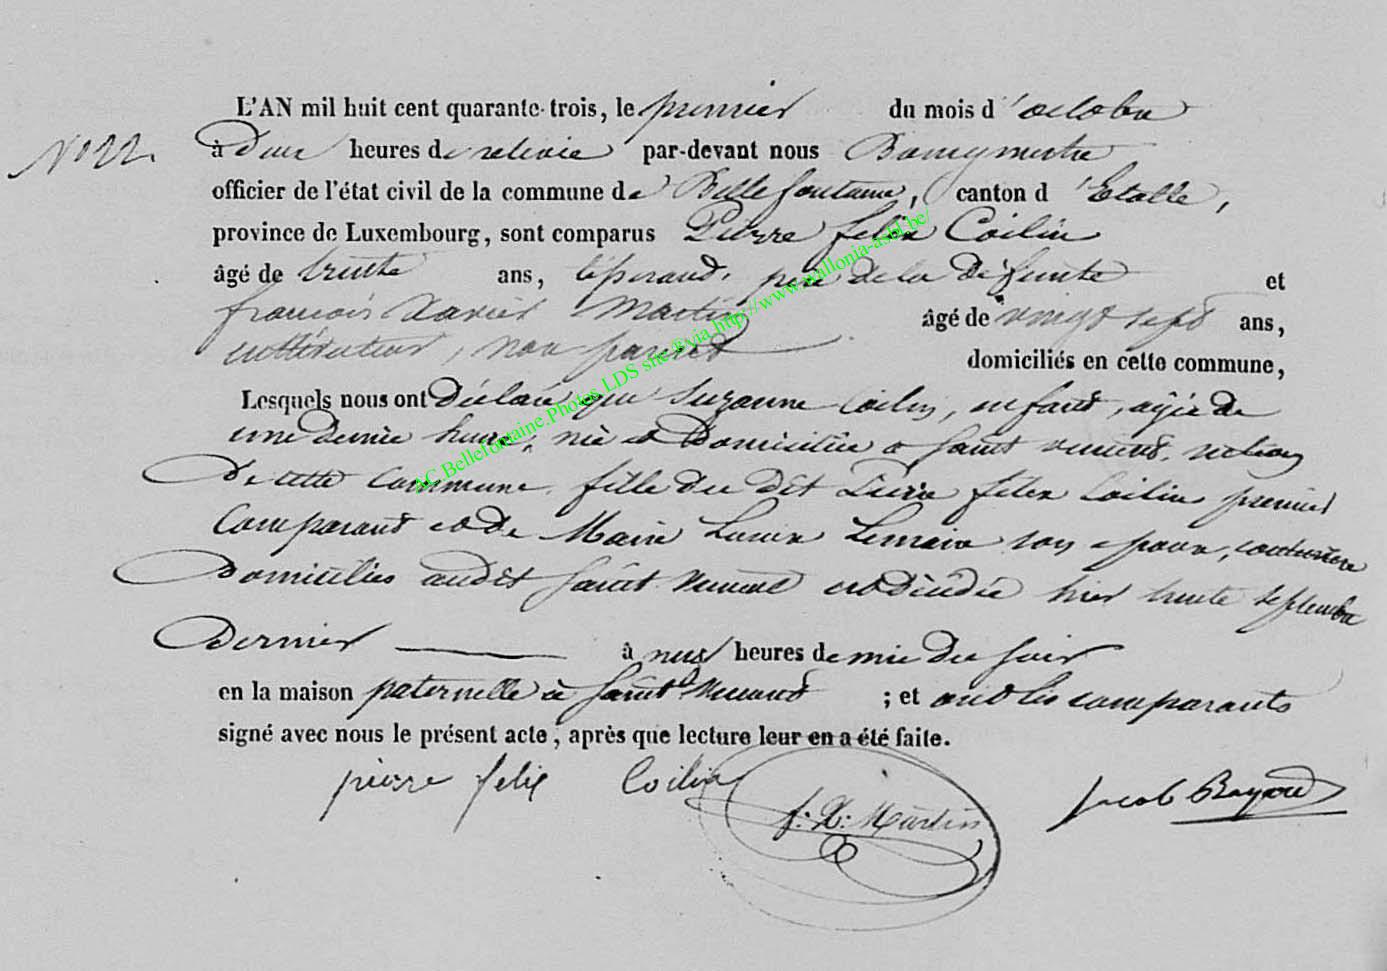 L'AN mil huit cent quarante-trois, le premier du mois d'octobre
No 22. à deux heures de relevée par-devant nous Bourgmestre
officier de l'état civil de la commune de Bellefontaine, canton d'Etalle,
province de Luxembourg, sont comparus Pierre felix Coilin
âgé de trente ans, père de la défunte et
françois Xavier Martin âgé de vingt sept ans,
cultivateur, non parent domiciliés en cette commune,
Lesquels nous ont déclaré que Suzanne Coilin, enfant, agée de
une demie heure, née et domiciliée a Saint vincent, section
de cette Commune, fille du dit Pierre felix Coilin premier
Comparant et de Marie Lemaire son epouse, couturière
domiciliés audit Saint Vincent est décédée hier trente septembre
dernier à neuf heures demie du soir
en la maison paternelle à Saint Vincent ; et ont les comparants
signé avec nous le présent acte, après que lecture leur en a été faite.
pierre felix Coilin f: X: Martin Jacob Bayard
AC.Bellefontaine.Photos LDS site/via http://www.wallonia-asbl.be/